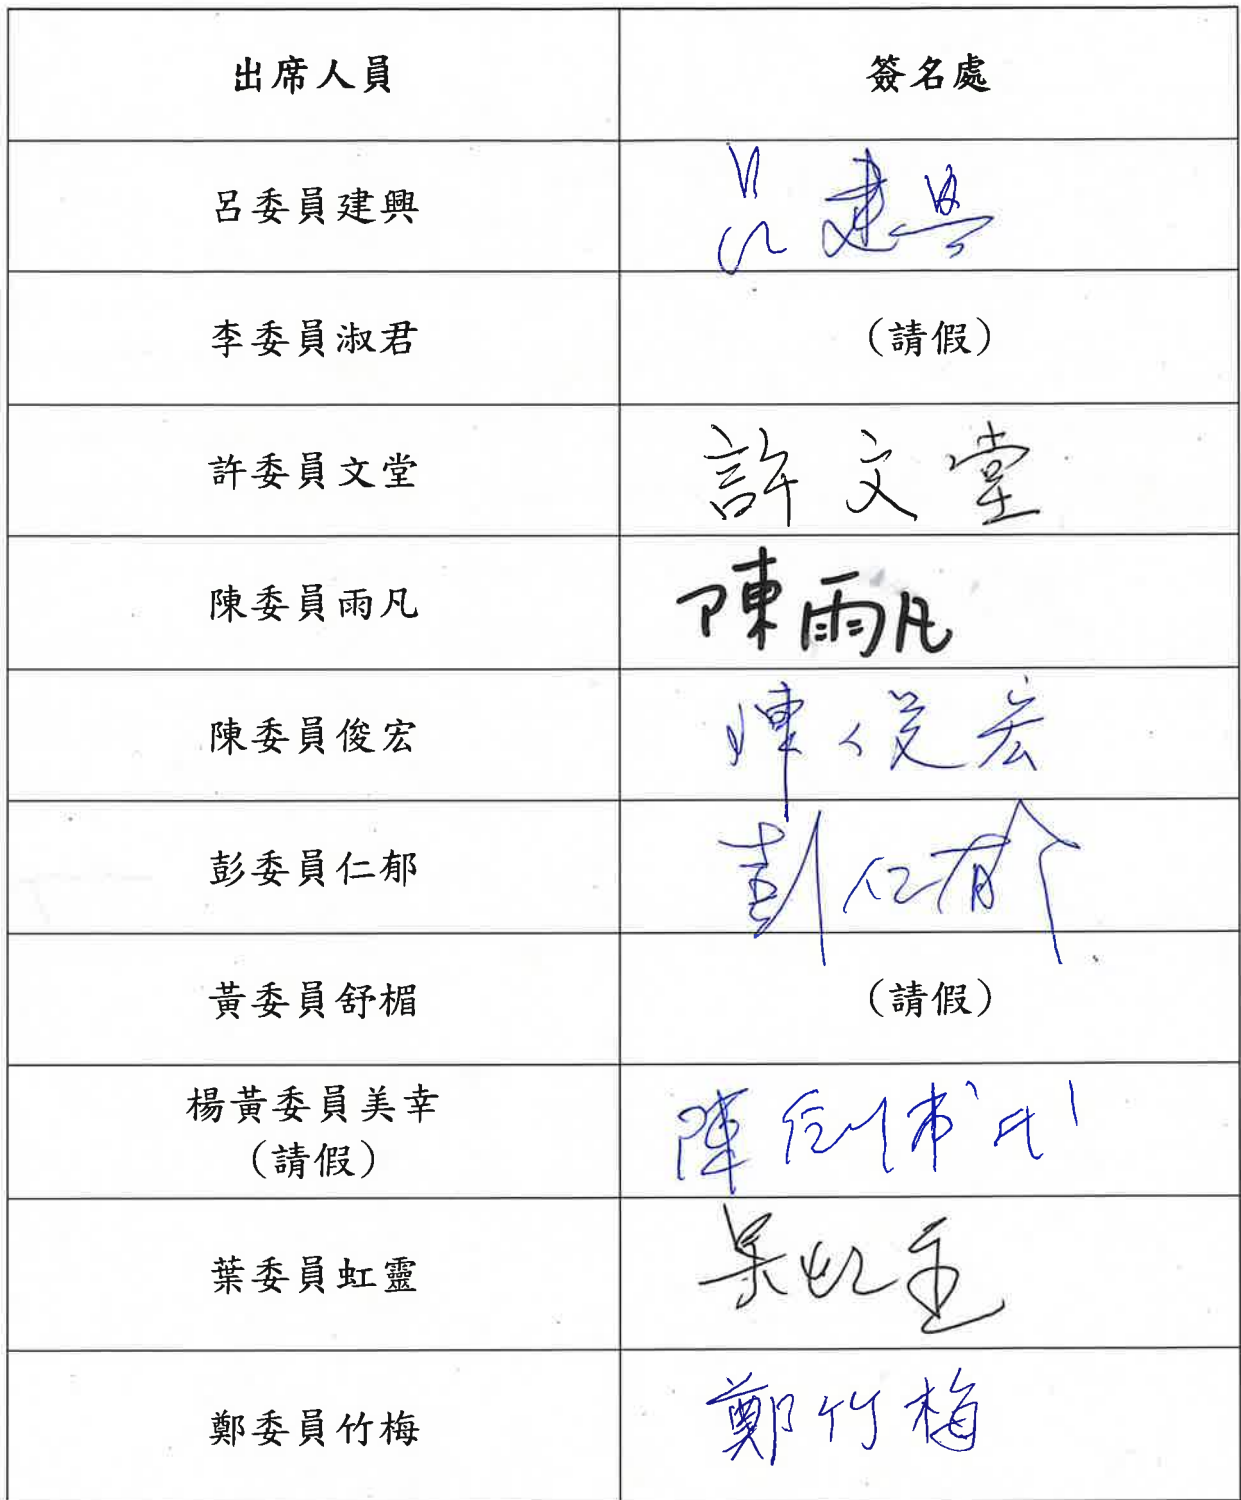 出席人員 簽名處
呂委員建興 呂建興
李委員淑君 (請假)
許委員文堂 許文堂
陳委員雨凡 陳雨凡
陳委員俊宏 陳俊宏
彭委員仁郁 彭仁郁
黃委員舒楣 (請假)
楊黃委員美幸
(請假)
陳
葉委員虹靈 葉虹靈
鄭委員竹梅 鄭竹梅